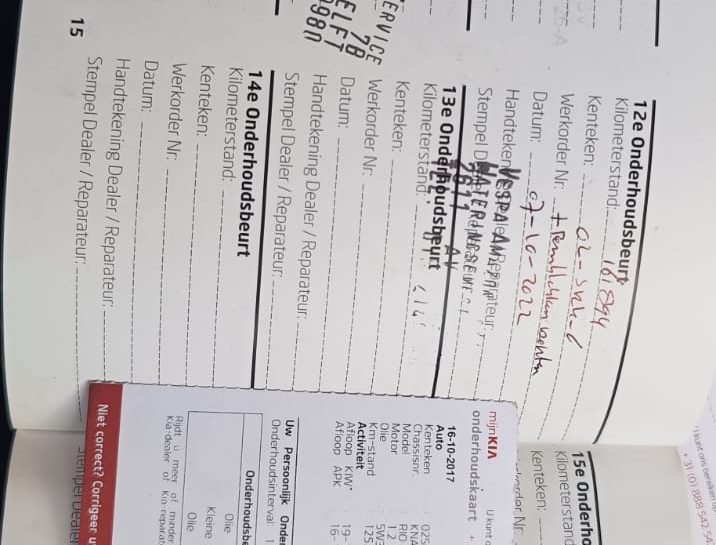 12e Onderhoudsbeurt
Kilometerstand: 161894
Kenteken: 02-SVH-6
Werkorder Nr: + Remblokken achter
Datum: 07-10-2022
Handteken
Stempel D
VESPA
WATERINGSE
2611 AV
TEL:
13e Onderhoudsbeurt
Kilometerstand:
Kenteken:
Werkorder Nr:
Datum:
Handtekening Dealer / Reparateur:
Stempel Dealer / Reparateur:
14e Onderhoudsbeurt
Kilometerstand:
Kenteken:
Werkorder Nr:
Datum:
Handtekening Dealer / Reparateur:
Stempel Dealer / Reparateur:
15
ERVICE
78
ELFT
980
15e Onderho
Kilometerstand
Kenteken:
mijnKIA
onderhoudskaart +
U kunt o
16-10-2017
Auto
Kenteken : 02S
Chassisnr. : KNA
Model : RIO
Motor : 1.2
Olie : 5W3
Km-stand : 125
Activiteit
Afloop KIW* : 19-
Afloop APK : 16-
Uw Persoonlijk Onder
Onderhoudsinterval: 1
Onderhoudsbe
Olie
Kleine
Olie
Rijdt u meer of minder
Kia-dealer of Kia-reparat
Niet correct? Corrigeer u
Stempel Dealer
u kunt ons bereiken
+31 (0) 888 542 54